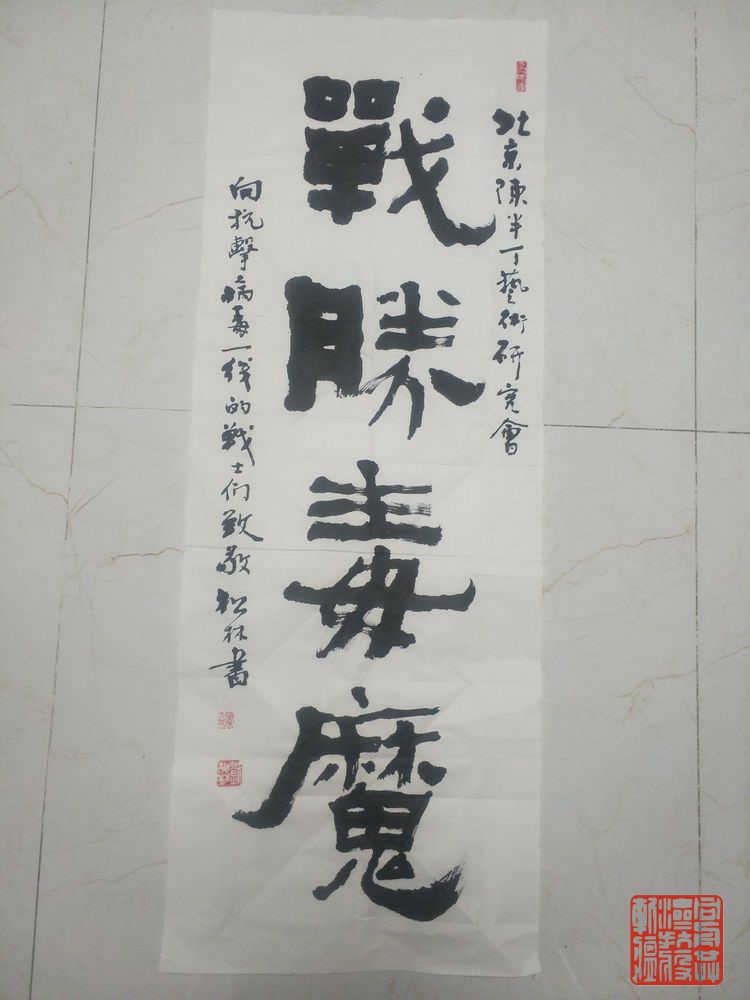 北京陳半丁藝術研究會
戰勝毒魔
向抗擊病毒一线的战士们致敬 松林書